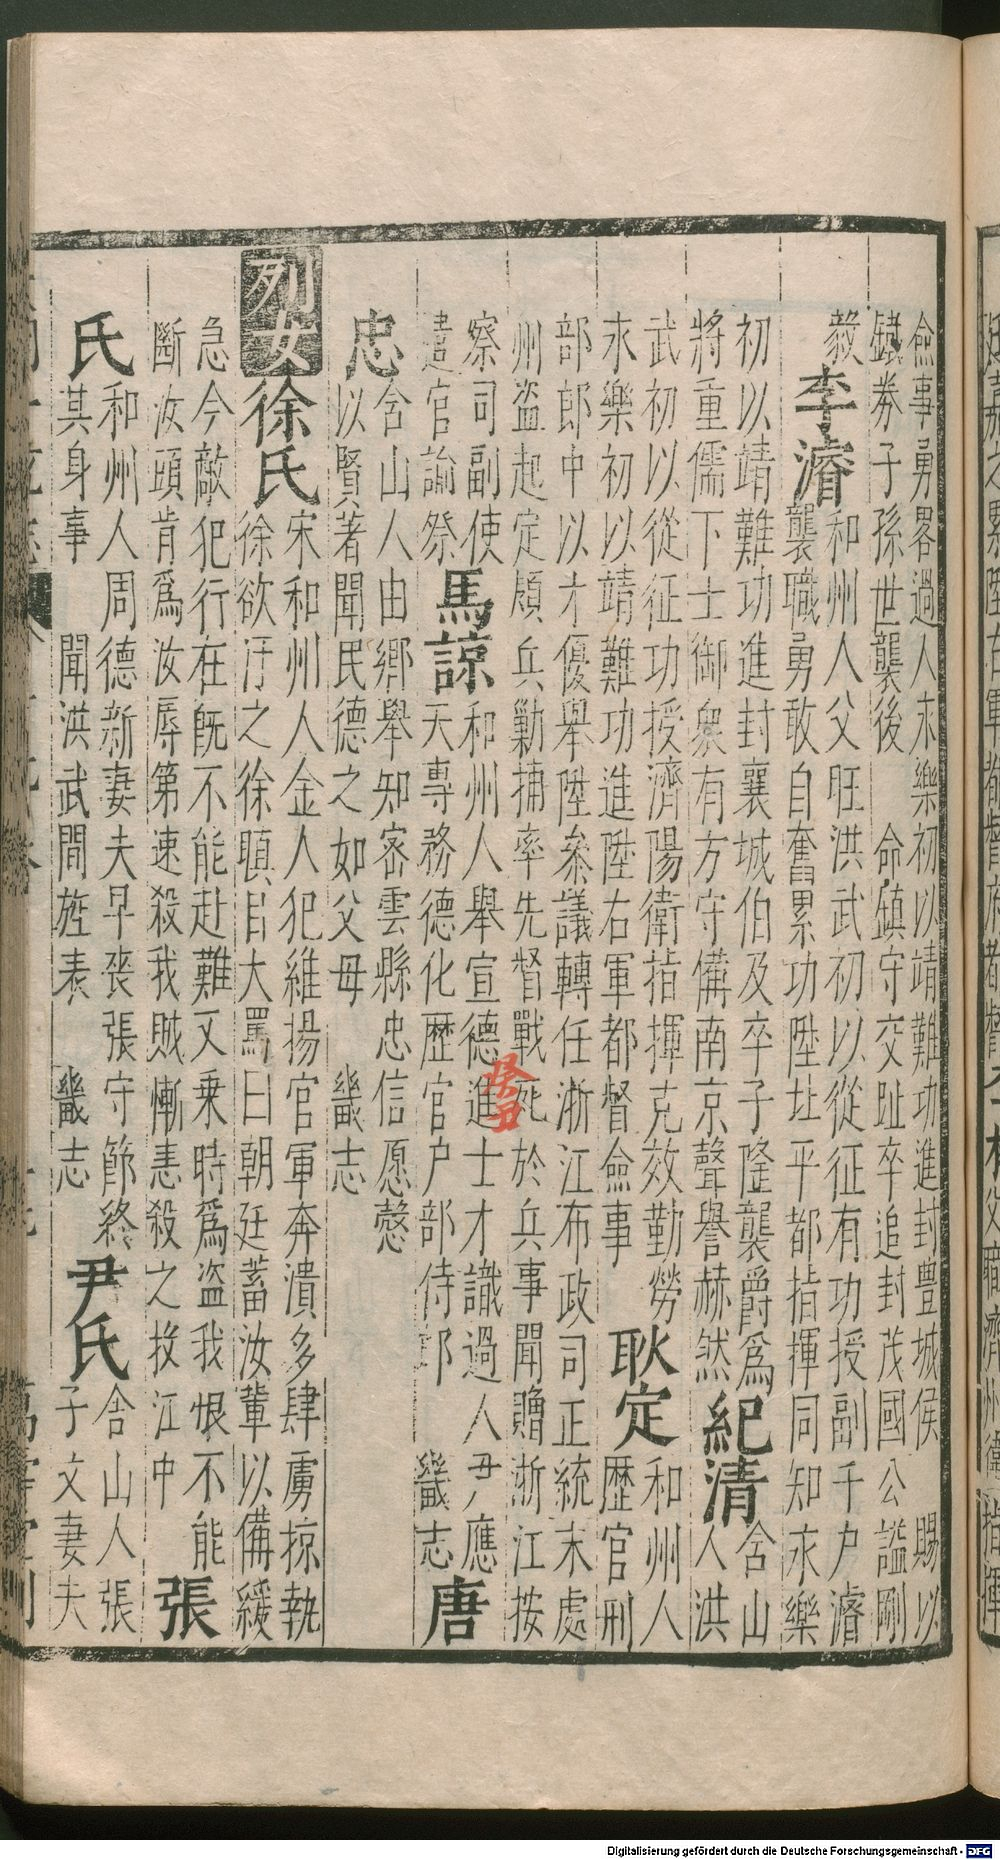 僉事勇畧過人永樂初以靖難功進封豊城侯 賜以
鐵券子孫世襲後 命鎮守交趾卒追封茂國公謚剛
毅
李濬
和州人父旺洪武初以從征有功授副千户濬
襲職勇敢自奮累功陞址平都指揮同知永樂
初以靖難功進封襄城伯及卒子隆襲爵爲
將重儒下士御衆有方守備南京聲譽赫然
紀清
含山
人洪
武初以從征功授濟陽衛指揮克效勤勞
永樂初以靖難功進陞右軍都督僉事
耿定
和州人
歷官刑
部郎中以才優舉陞叅議轉任浙江布政司正統末處
州盗起定頻兵勦捕率先督戰死於兵事聞贈浙江按
察司副使
遣官諭祭
馬諒
和州人舉宣德進士才識過人尹應
天專務德化歷官户部侍郎 畿志
唐
忠
含山人由鄉舉知宻雲縣忠信愿慤
以賢著聞民德之如父母 畿志
列女
徐氏
宋和州人金人犯維揚官軍奔潰多肆虜掠執
徐欲汙之徐瞋目大罵曰朝廷蓄汝輩以備緩
急今敵犯行在旣不能赴難又乗時爲盗我恨不能
斷汝頭肯爲汝辱第速殺我賊慚恚殺之投江中
張
氏
和州人周德新妻夫早丧張守節終
其身事 聞洪武間旌表 畿志
尹氏
含山人張
子文妻夫
癸丑
Digitalisierung gefördert durch die Deutsche Forschungsgemeinschaft - DFG